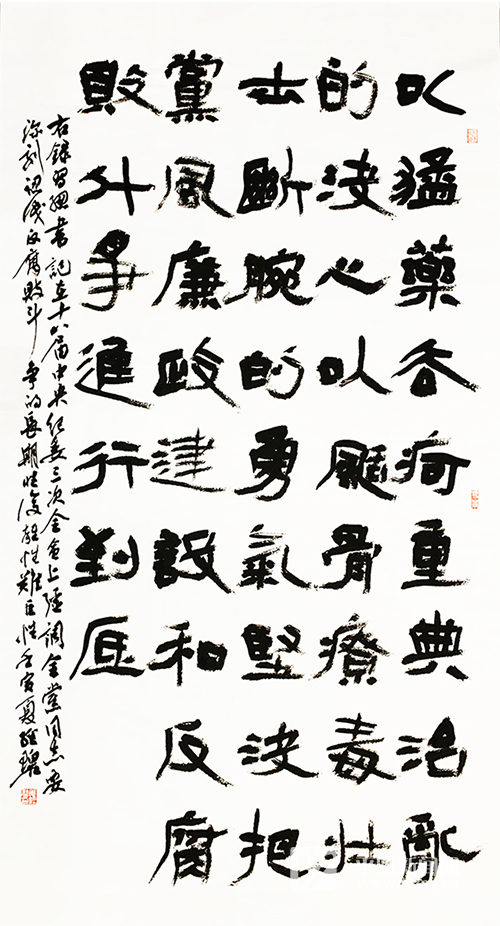 以猛藥去疴重典治亂
的決心以颳骨療毒壯
士斷腕的勇氣堅決把
黨風廉政建設和反腐
敗斗爭進行到底
右録習總書記在十八届中央纪委三次全会上强调全党同志要
深刻認識反腐敗斗争的長期性復雜性艱巨性壬寅夏